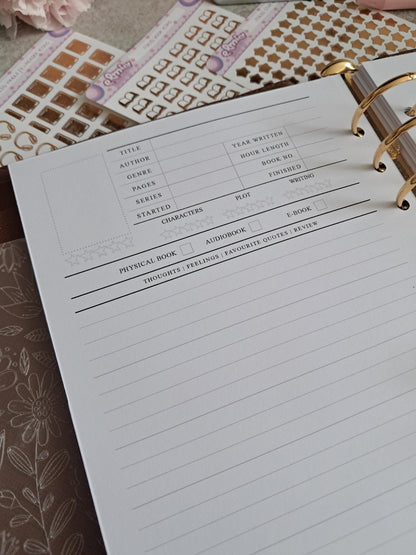 TITLE
AUTHOR YEAR WRITTEN
GENRE HOUR LENGTH
PAGES BOOK NO.
SERIES FINISHED
STARTED
CHARACTERS PLOT WRITING
PHYSICAL BOOK AUDIOBOOK E-BOOK
THOUGHTS | FEELINGS | FAVOURITE QUOTES | REVIEW